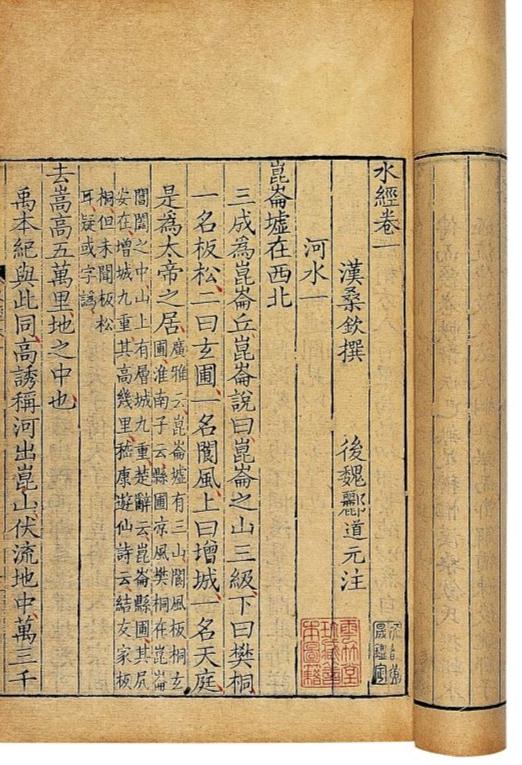 水經卷一
漢桑欽撰　後魏酈道元注
河水一
崑崙墟在西北
三成為崑崙丘崑崙說曰崑崙之山三級下曰樊桐
一名板松二曰玄圃一名閬風上曰增城一名天庭
是為太帝之居
廣雅云崑崙墟有三山閬風板桐玄
圃淮南子云縣圃凉風樊桐在崑崙
閶闔之中山上有層城九重楚辭云崑崙縣圃其尻
安在增城九重其高幾里嵇康遊仙詩云結友家板
桐但未聞板松
耳疑或字譌
去嵩高五萬里地之中也
禹本紀與此同高誘稱河出崑山伏流地中萬三千